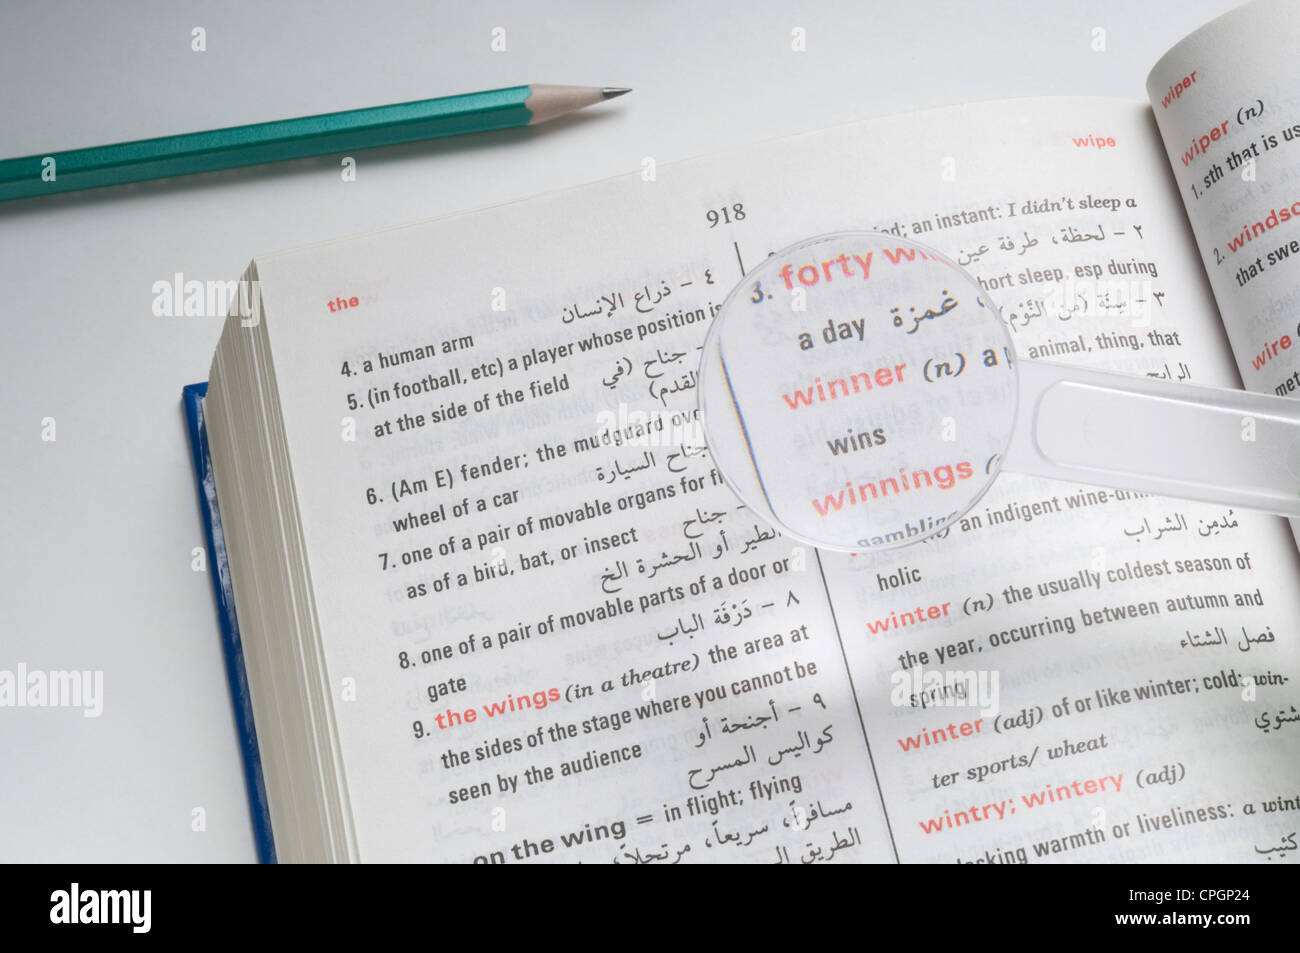 918
the
٤ – ذراع الإنسان
4. a human arm
5. (in football, etc) a player whose position is
at the side of the field
جناح (في
القدم)
6. (Am E) fender; the mudguard over
wheel of a car
جناح السيارة
7. one of a pair of movable organs for
as of a bird, bat, or insect
– جناح
الطير أو الحشرة الخ
8. one of a pair of movable parts of a door or
gate
٨ – دَرْفَة الباب
9. the wings (in a theatre) the area at
the sides of the stage where you cannot be
seen by the audience
٩ – أجنحة أو
كواليس المسرح
on the wing = in flight; flying
مسافراً، سريعاً، مرتحلاً،
الطريق
wipe
an instant: I didn't sleep a
٢ – لحظة، طرفة عين
short sleep, esp during
٣ – سِنَة (من النَّوْم)
3. forty
a day غمزة
animal, thing, that
winner (n) a
الرابح
wins
winnings
gambling
an indigent
holic
مُدمِن الشراب
winter (n) the usually coldest season of
the year, occurring between autumn and
spring
فصل الشتاء
winter (adj) of or like winter; cold: win-
ter sports/ wheat
شتوي
wintry; wintery (adj)
lacking warmth or liveliness: a
كئيب
wiper
wiper (n)
1. sth that is
2.
that
wire
alamy
Image ID: CPGP24
www.alamy.com